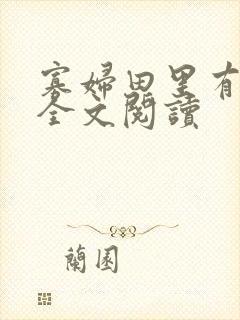 寡婦田里有
全文閱讀
蘭園